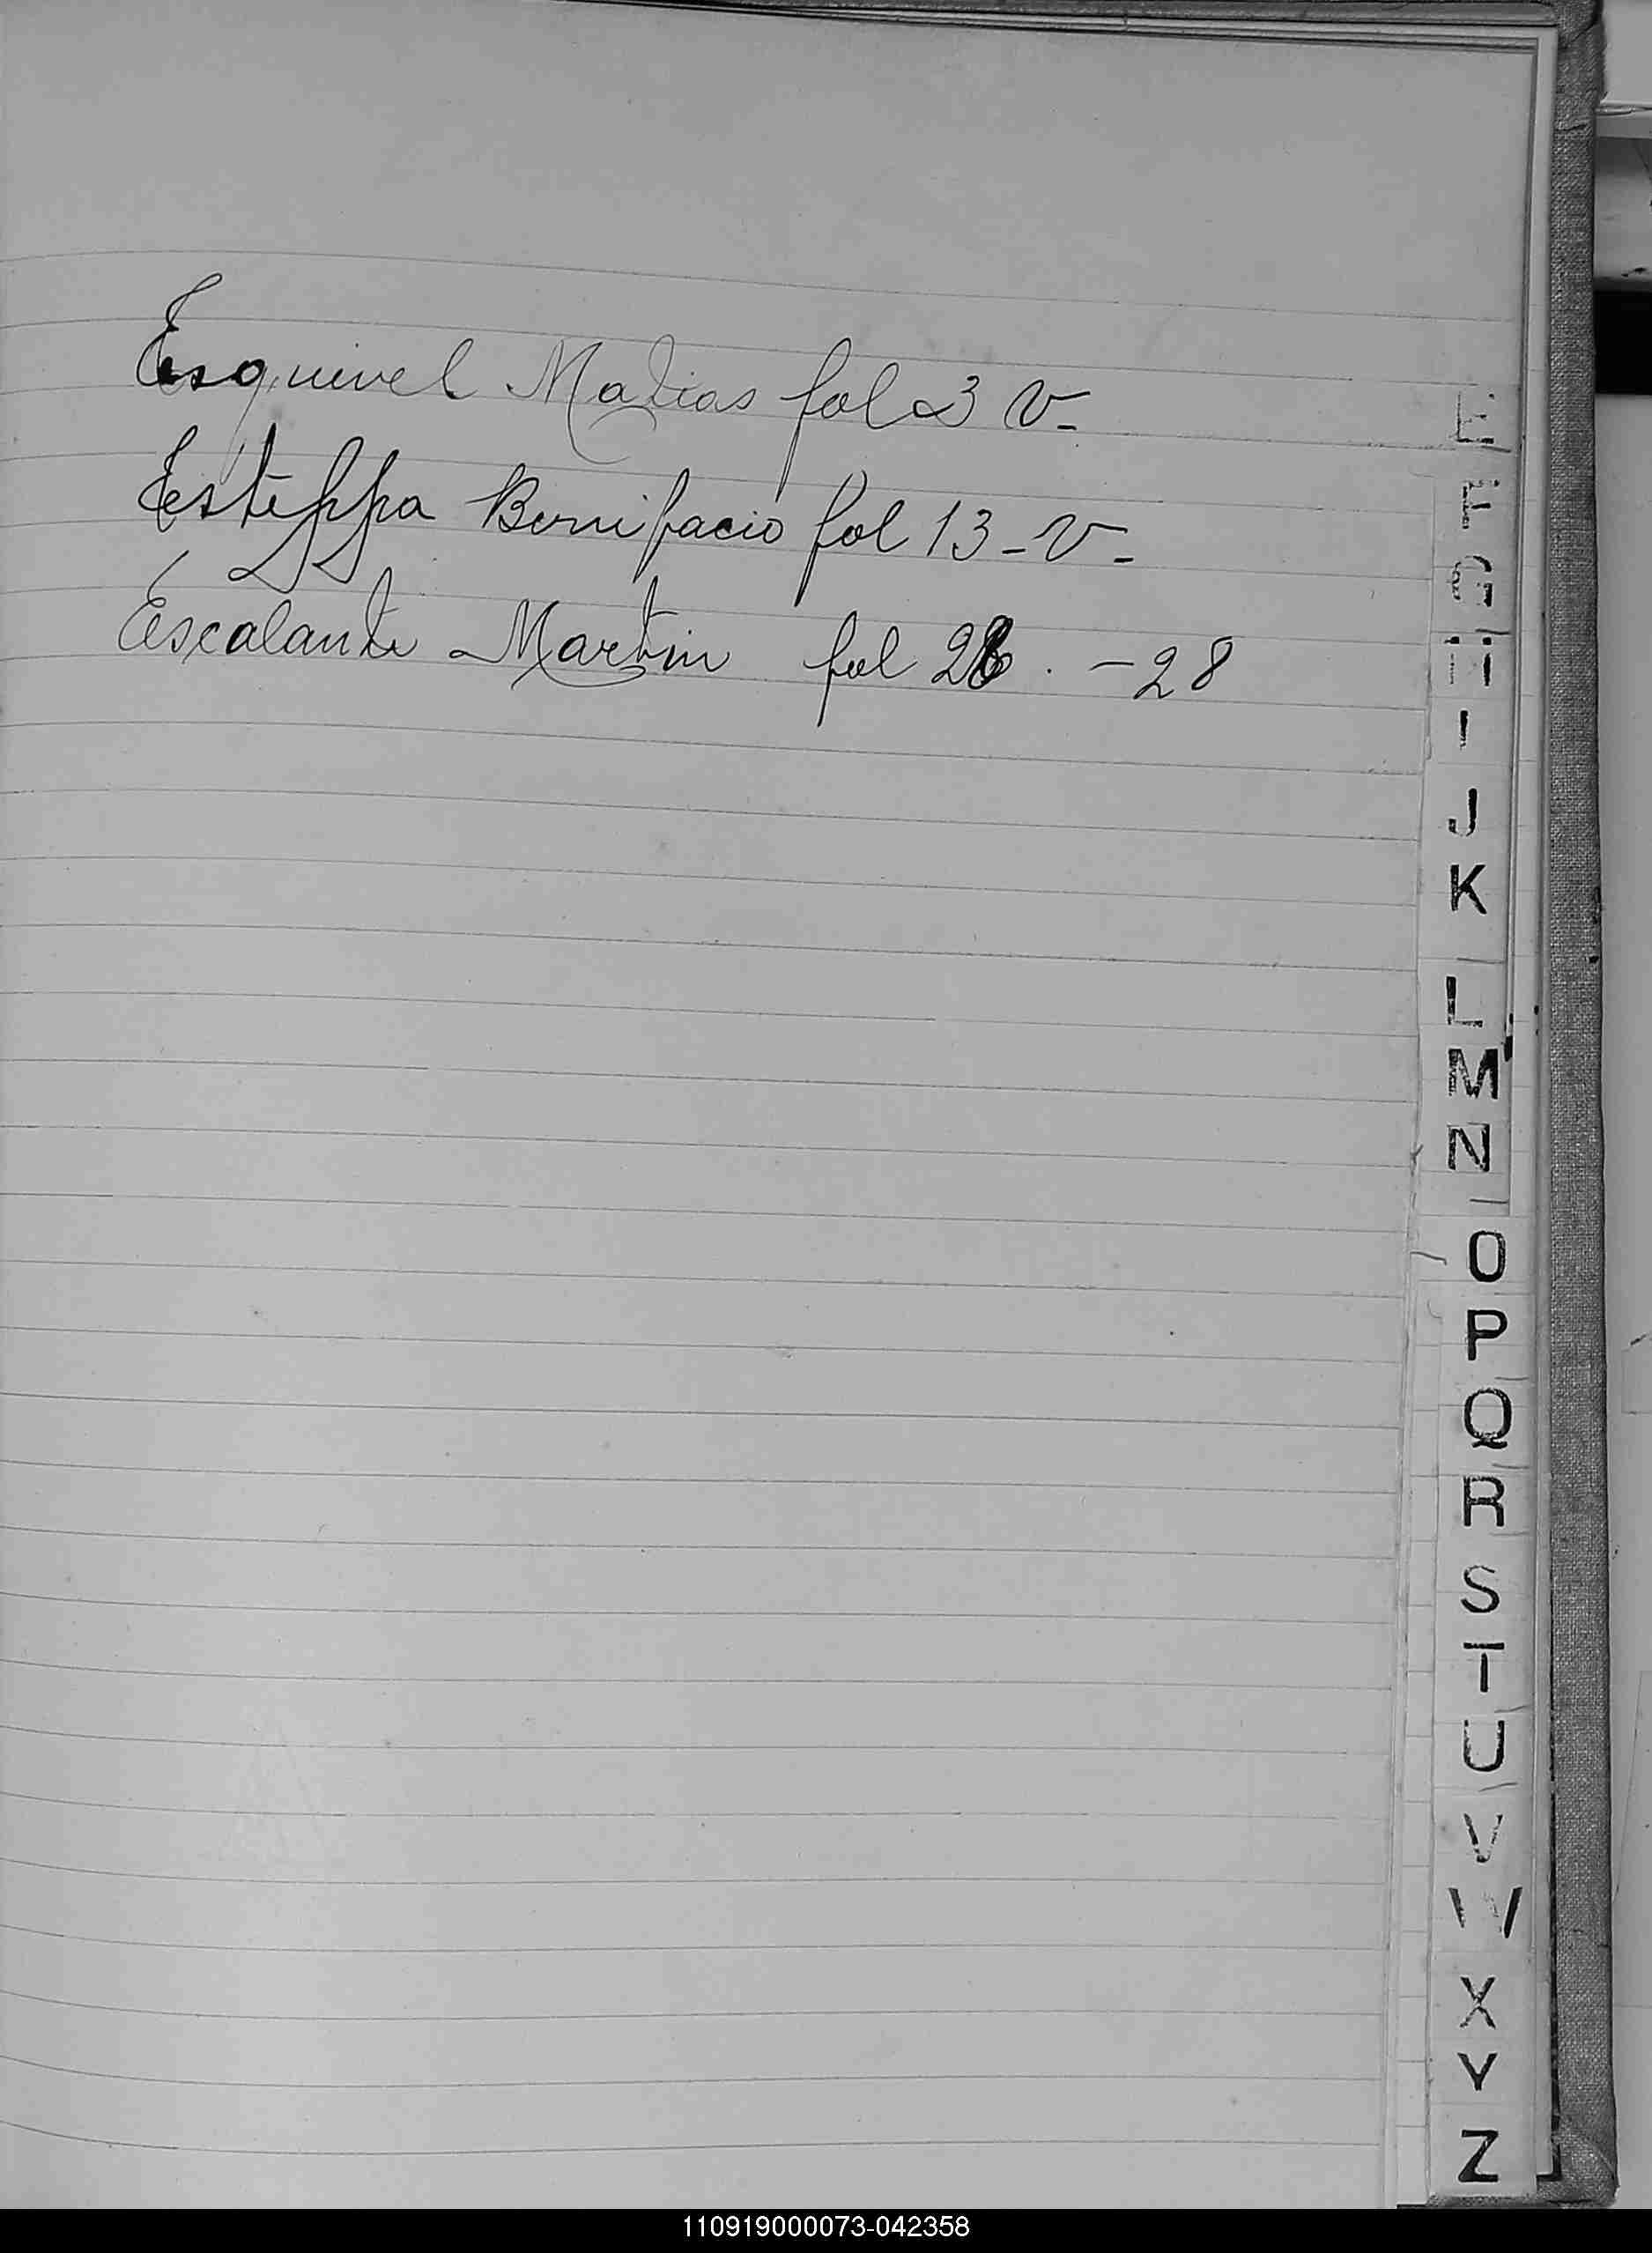 Esquivel Matias fol 3 V-
Esteppa Bonifacio fol 13-V-
Escalante Martin fol 26. - 28
E
F
G
H
I
J
K
L
M
N
O
P
Q
R
S
T
U
V
W
X
Y
Z
110919000073-042358